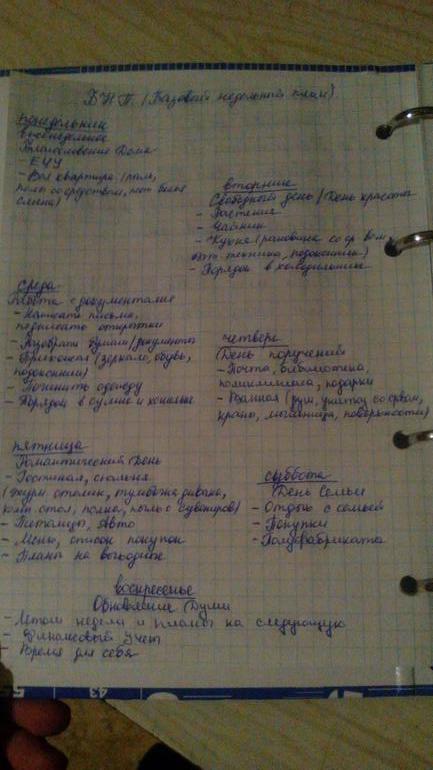 Б Н П. (Базовый недельный план).
понедельник
еженедельное
Благословение Дома
- ЕЧУ
- Вся квартира (пыль,
полы со средством, пост. белья
смена)
вторник
Свободный день / День красоты
- Растения
- Чайник
- Кухня (раковина со ср-вом,
быт. техника, подоконник)
- Порядок в холодильнике
среда
Работа с документами
- Написать письма,
подписать открытки
- Разобрать бумаги/документы
- Прихожая (зеркало, обувь,
подоконник)
- Починить одежду
- Порядок в сумке и кошельке
четверг
День поручений
- Почта, библиотека,
поликлиника, подарки
- Ванная (душ, унитаз со ср-вом,
краны, мыльница, поверхности)
пятница
Романтический День
- Гостиная, спальня
(журн столик, тумбочка, дивана,
комп стол, полка, пыль с сувениров)
- Питомцы, Авто
- Меню, список покупок
- Планы на выходные
суббота
День Семьи
- Отдых с семьей
- Покупки
- Полуфабрикаты
воскресенье
Обновление Души
- Итоги недели и планы на следующую
- Финансовый учет
- Время для себя
43